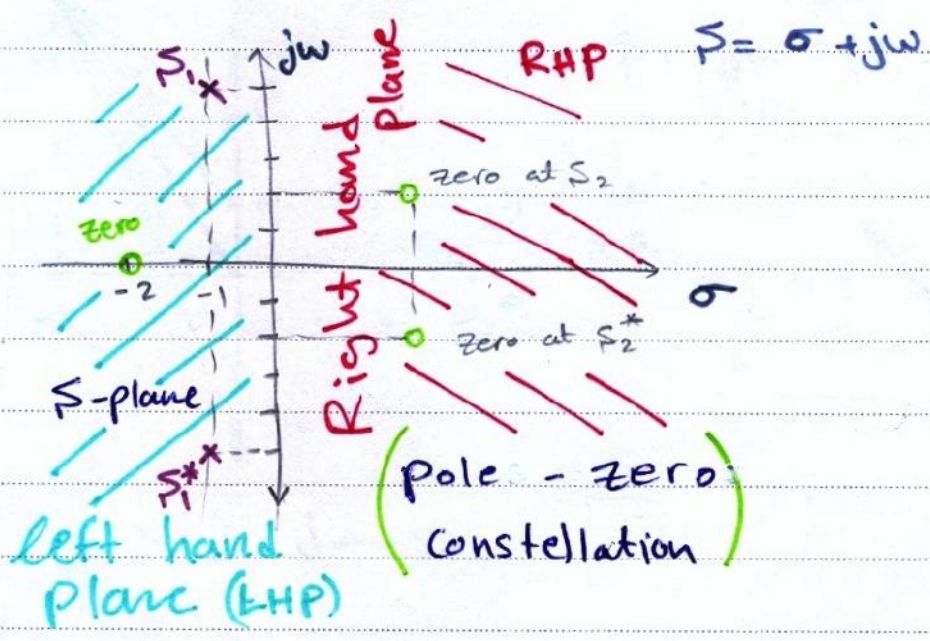 S = σ + jω
S₁
jω
RHP
Right hand plane
zero at S₂
zero
-2
-1
σ
zero at S₂*
S-plane
S₁*
(pole - zero
constellation)
left hand
plane (LHP)